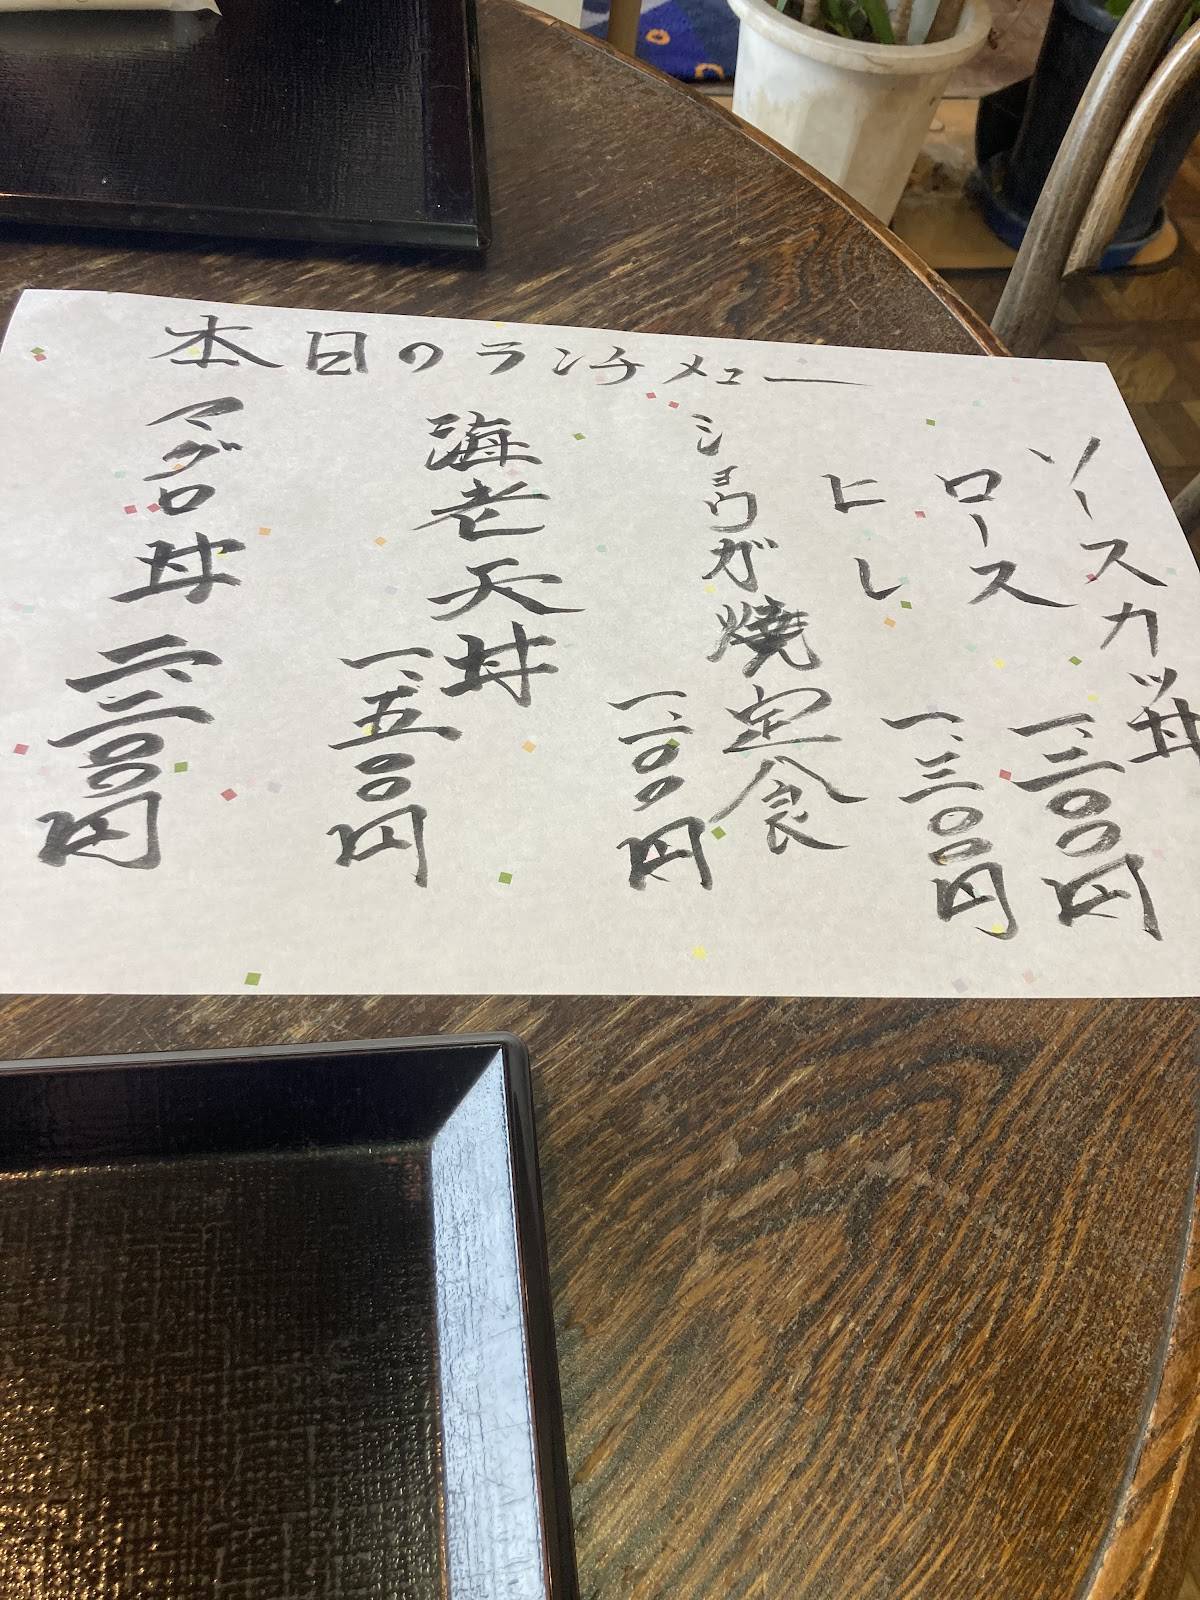 本日のランチメニュー
ソースカツ丼
ロース 一、二〇〇円
ヒレ 一、三〇〇円
ショウガ焼定食
一、二〇〇円
海老天丼
一、五〇〇円
マグロ丼 二、二〇〇円